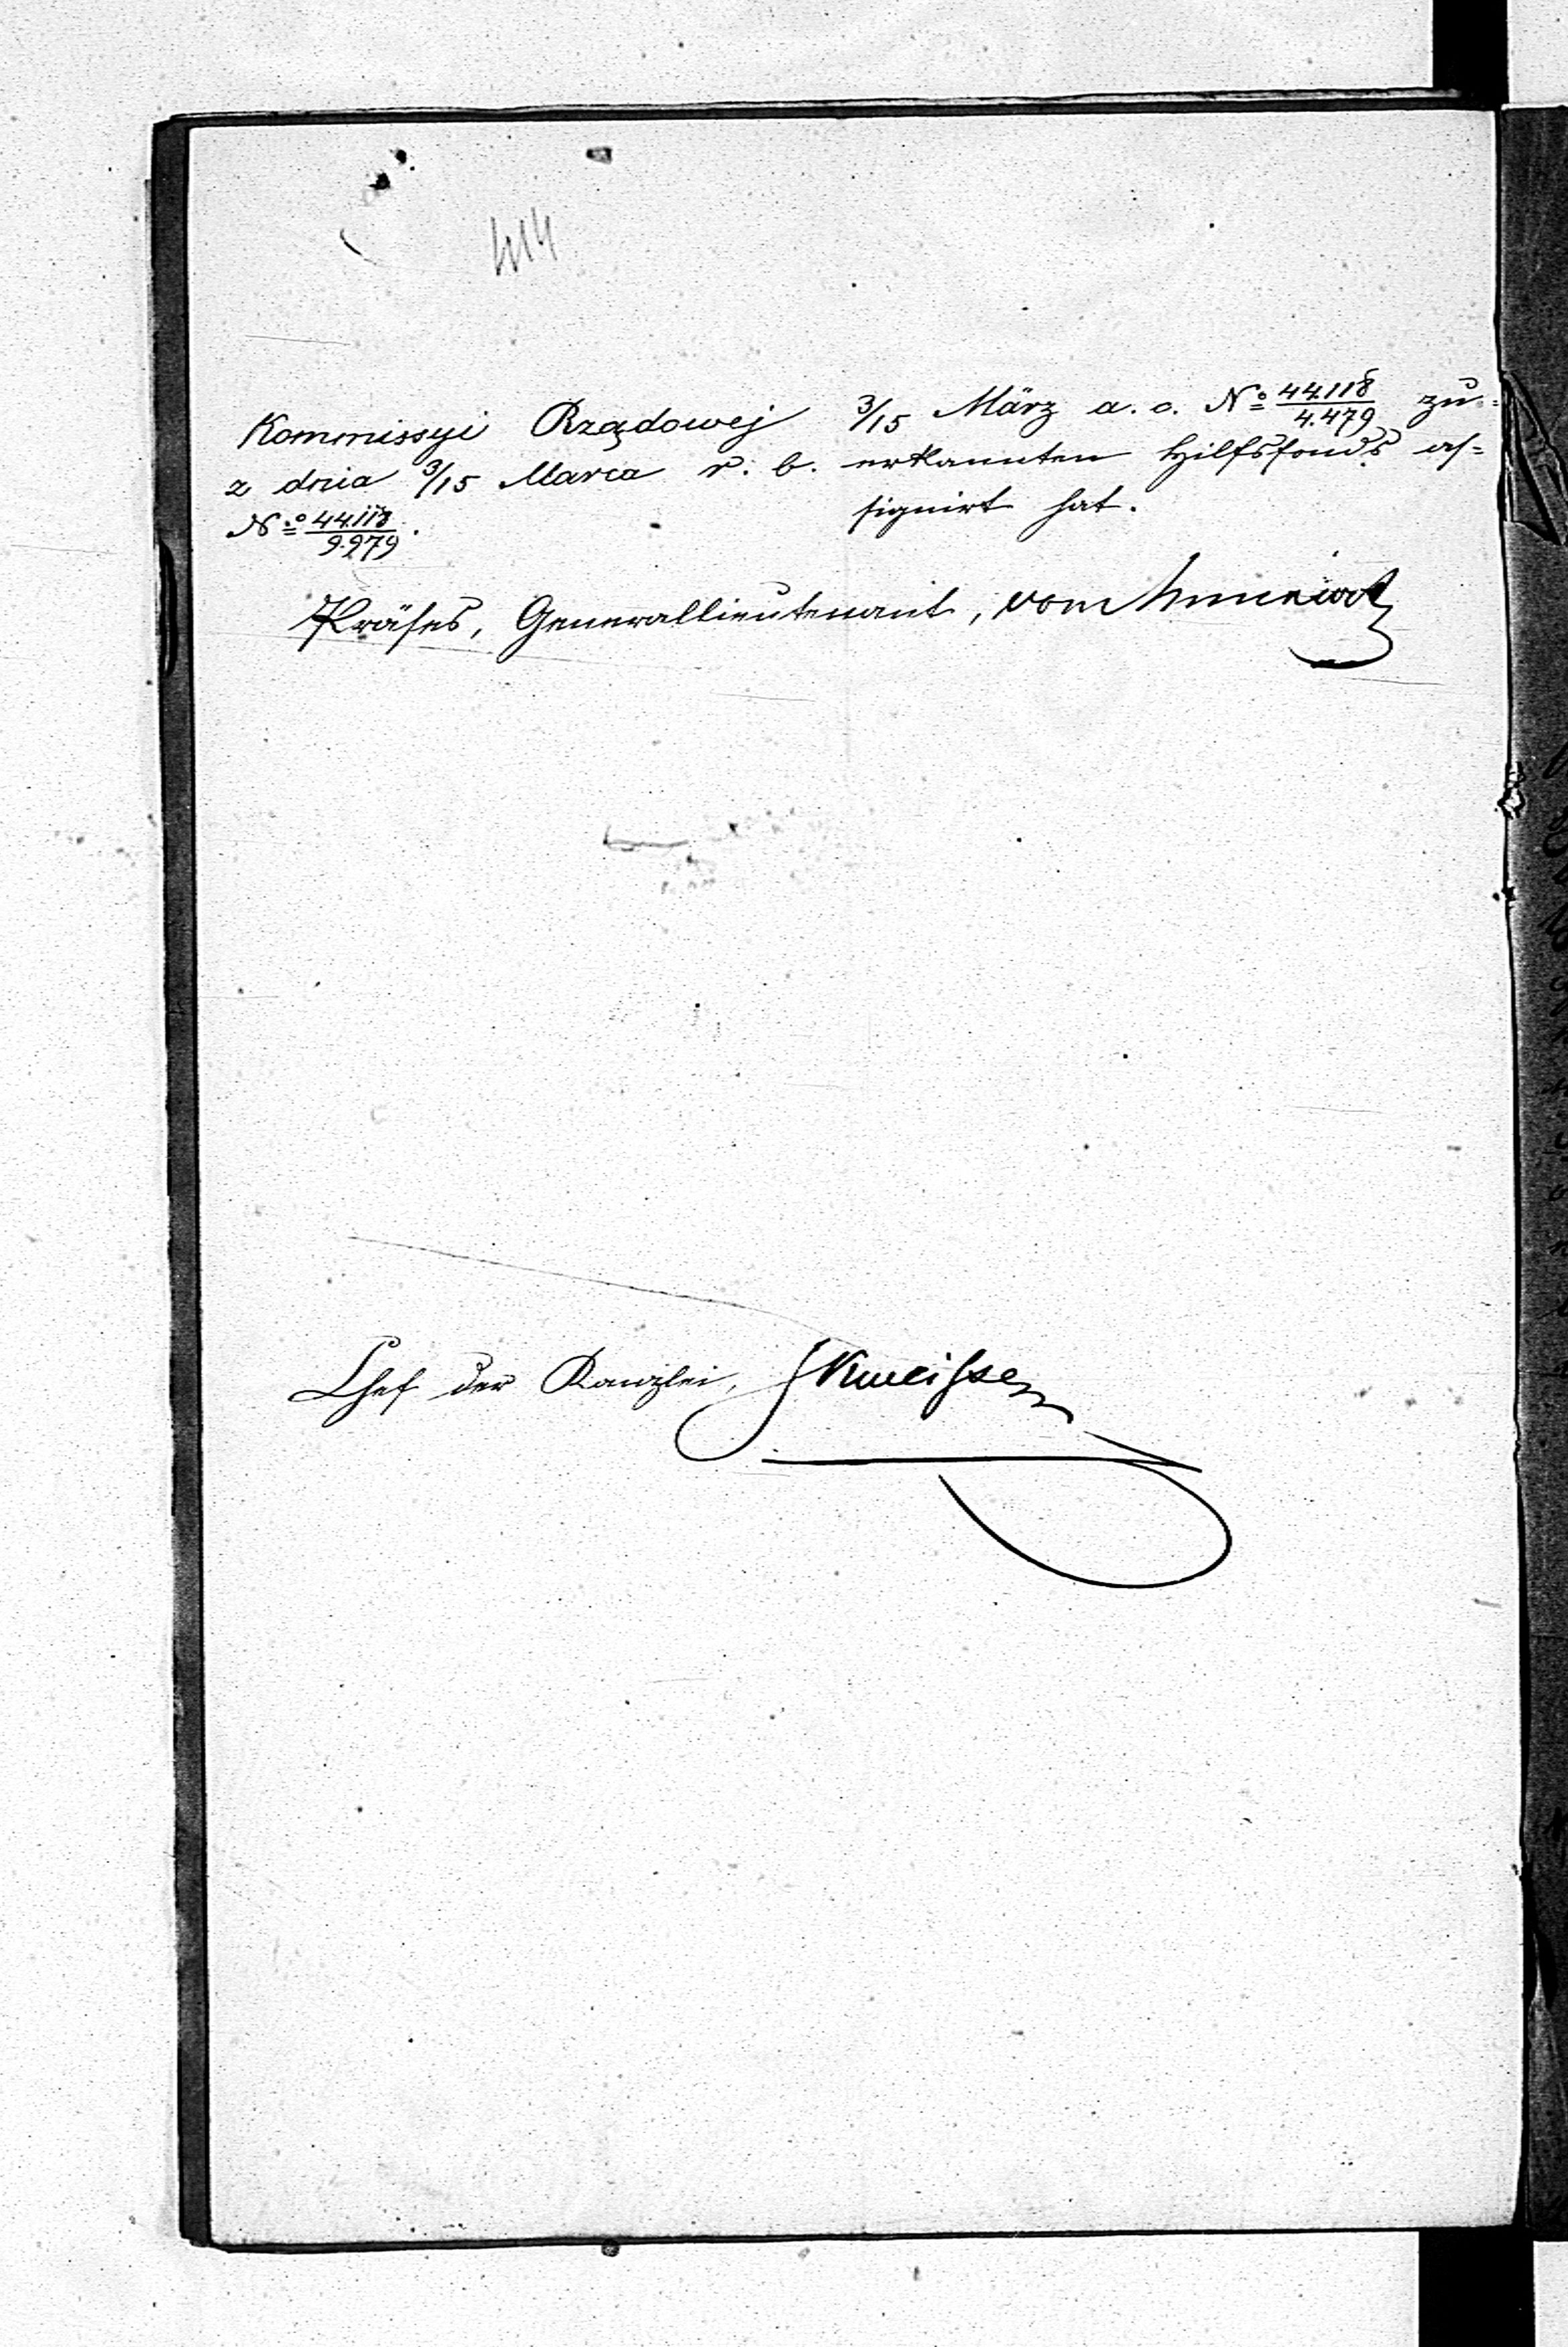 414
Kommissyi Rządowej
z dnia 3/15 Marca r. b.
No 44.118/9.979.
3/15 März a. c. No 44.118/4.479 zu-
erkannten Hilfsfonds as-
signirt hat.
Präses, Generallieutenant, von
Chef der Kanzlei,